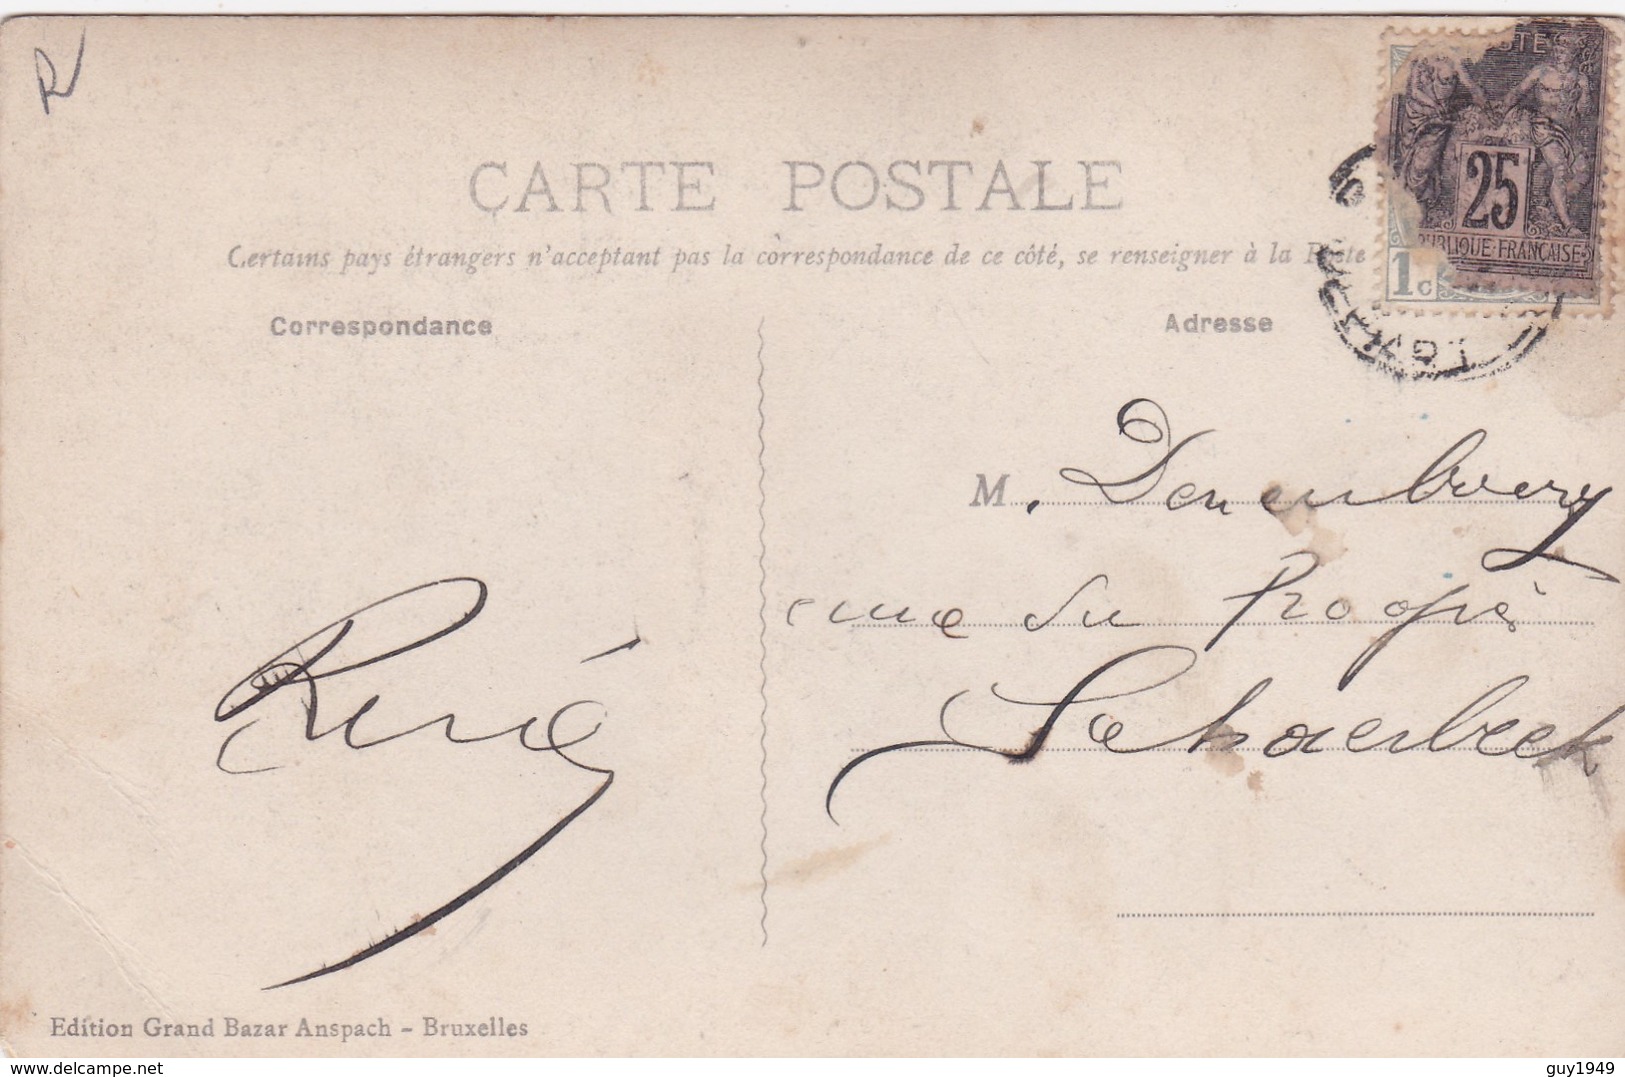 R
CARTE POSTALE
Certains pays étrangers n'acceptant pas la correspondance de ce côté, se renseigner à la Poste
Correspondance
Adresse
25
PUBLIQUE·FRANÇAISE
1c
M. Denenbourg
rue du Progrès
Schaerbeek
René
Edition Grand Bazar Anspach - Bruxelles
delcampe.net
guy1949